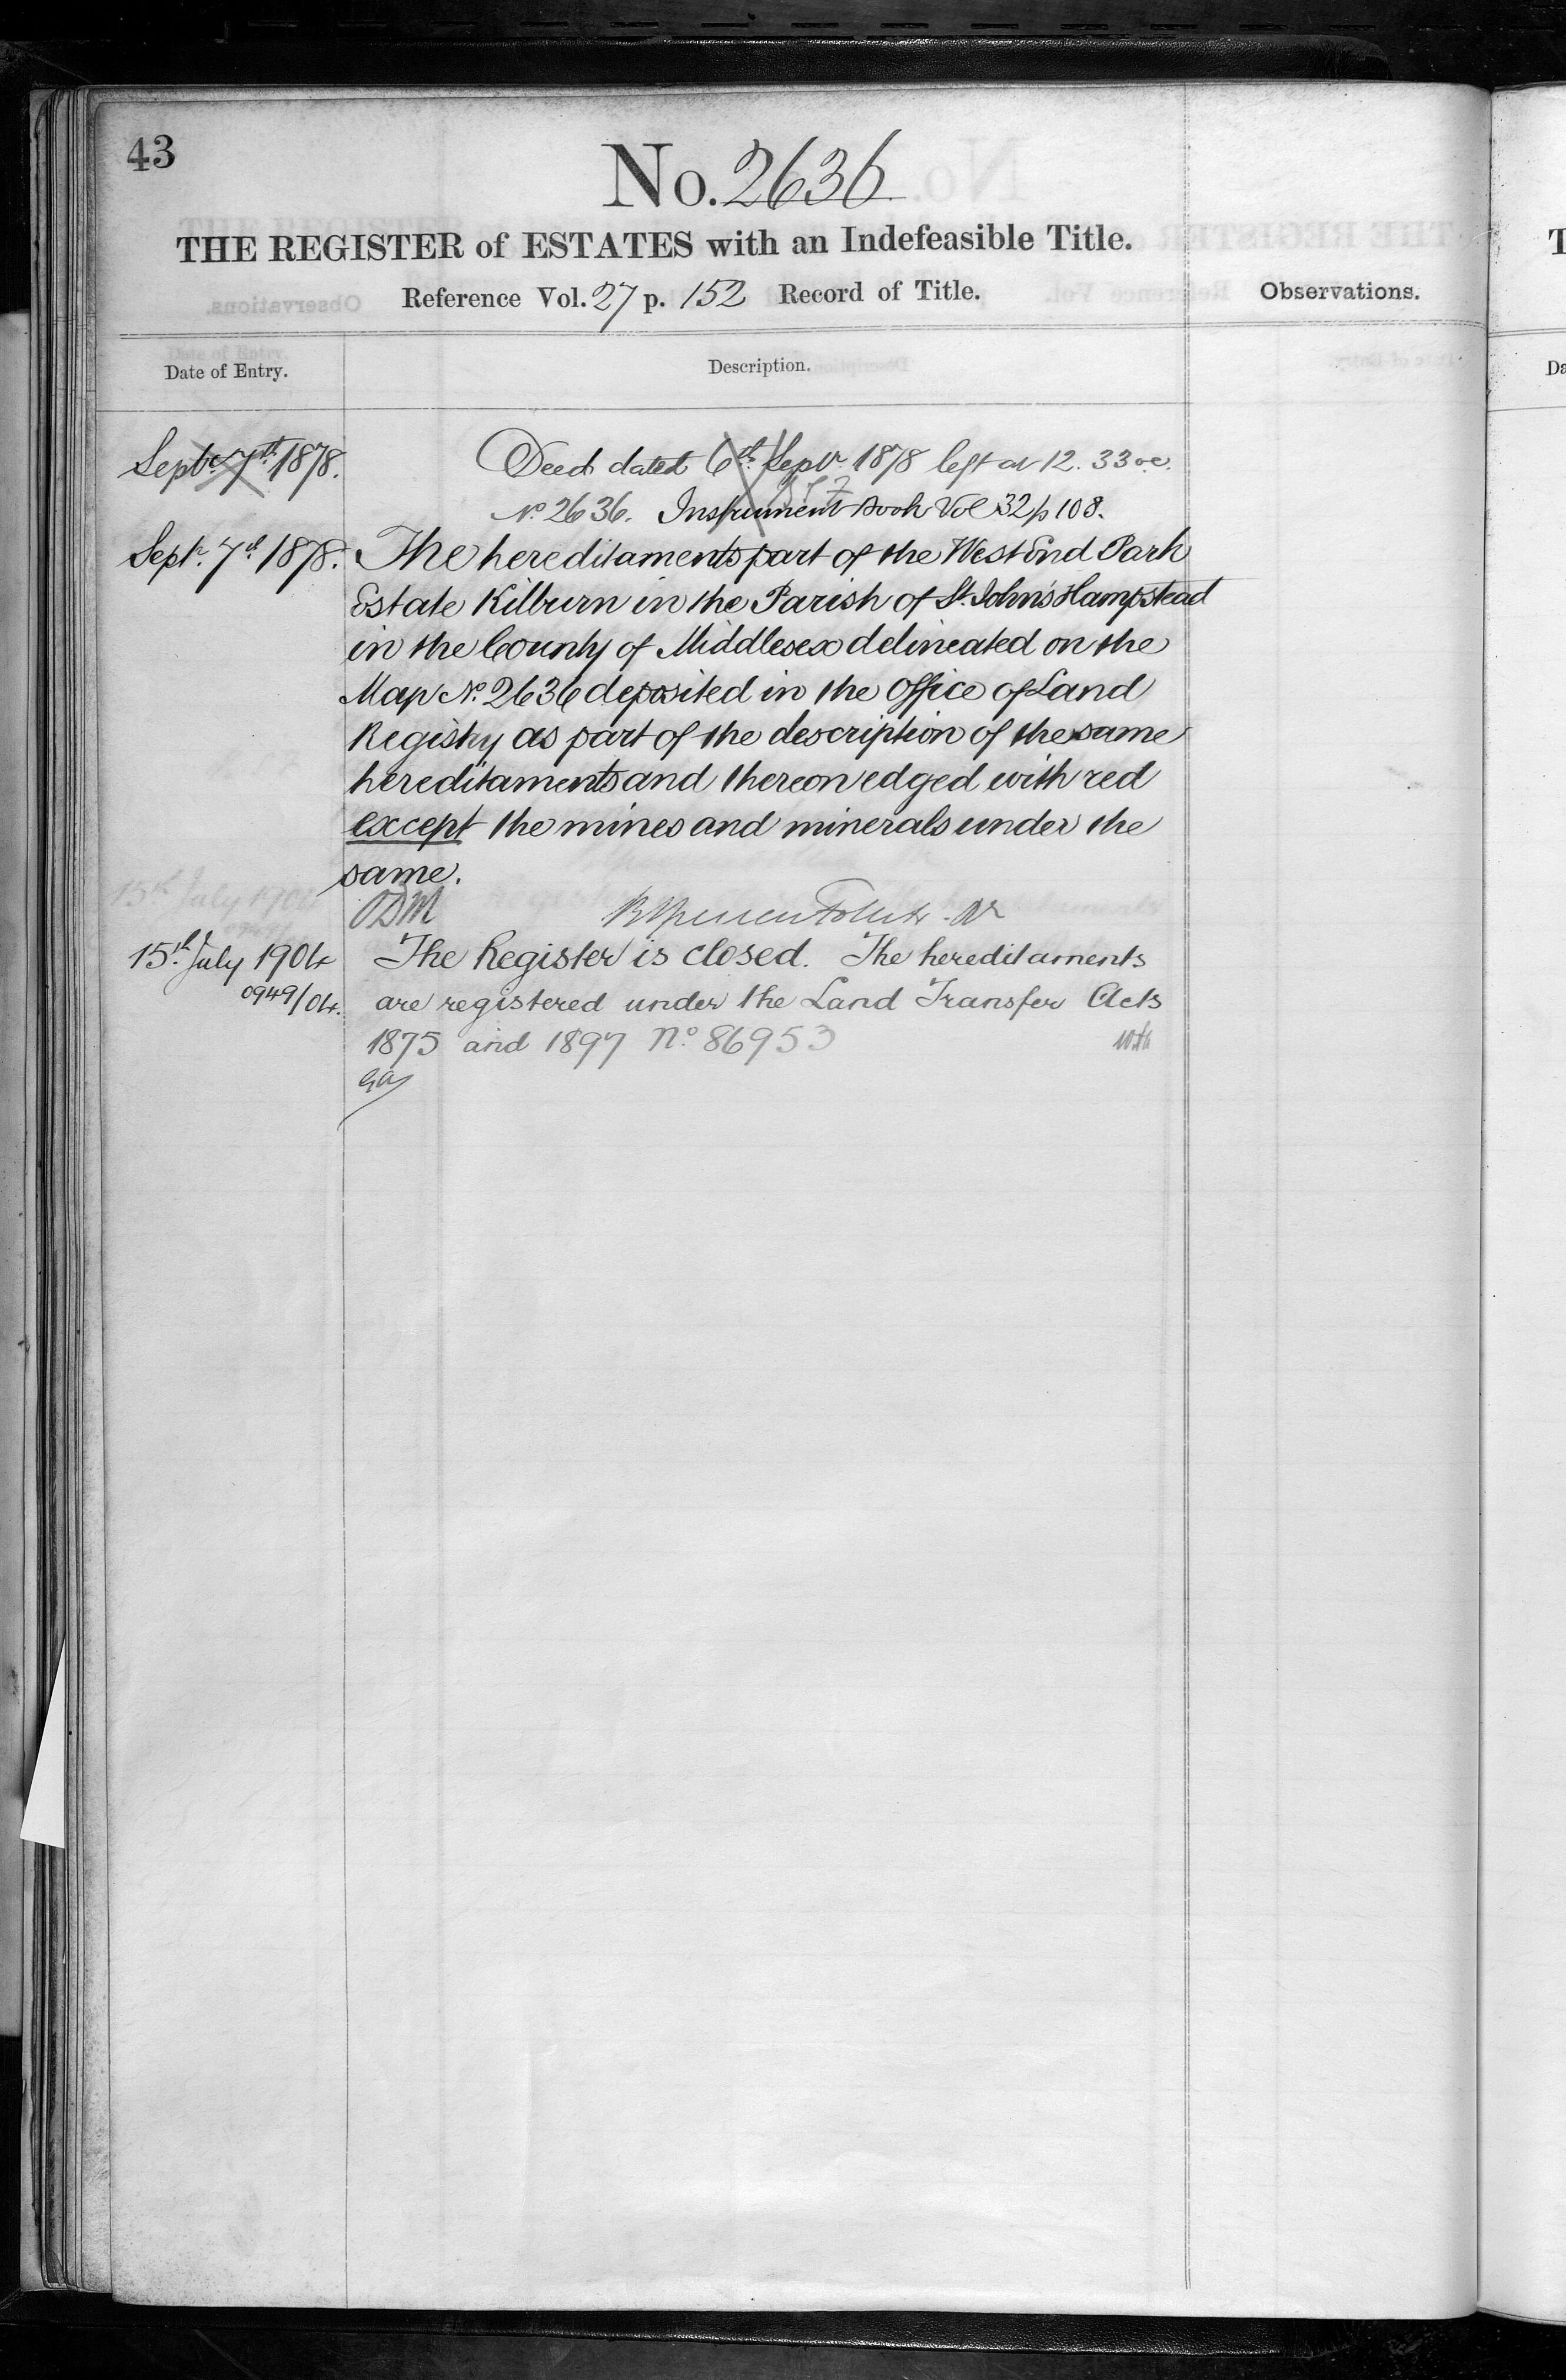 43
No. 2636
THE REGISTER of ESTATES with an Indefeasible Title.
Reference Vol. 27 p. 152 Record of Title.
Observations.
Date of Entry.
Description.
Septr. 7th 1878.
Deed dated 6th Septr. 1878 left at 12. 33 oc.
No. 2636. Instrument Book Vol 32 p 108.
Septr. 7th 1878. The hereditaments part of the West End Park
Estate Kilburn in the Parish of St. John's Hampstead
in the County of Middlesex delineated on the
Map No. 2636 deposited in the Office of Land
Registry as part of the description of the same
hereditaments and thereon edged with red
except the mines and minerals under the
same.
15th July 1904 The Register is closed. The hereditaments
0949/04. are registered under the Land Transfer Acts
1875 and 1897 No. 86953